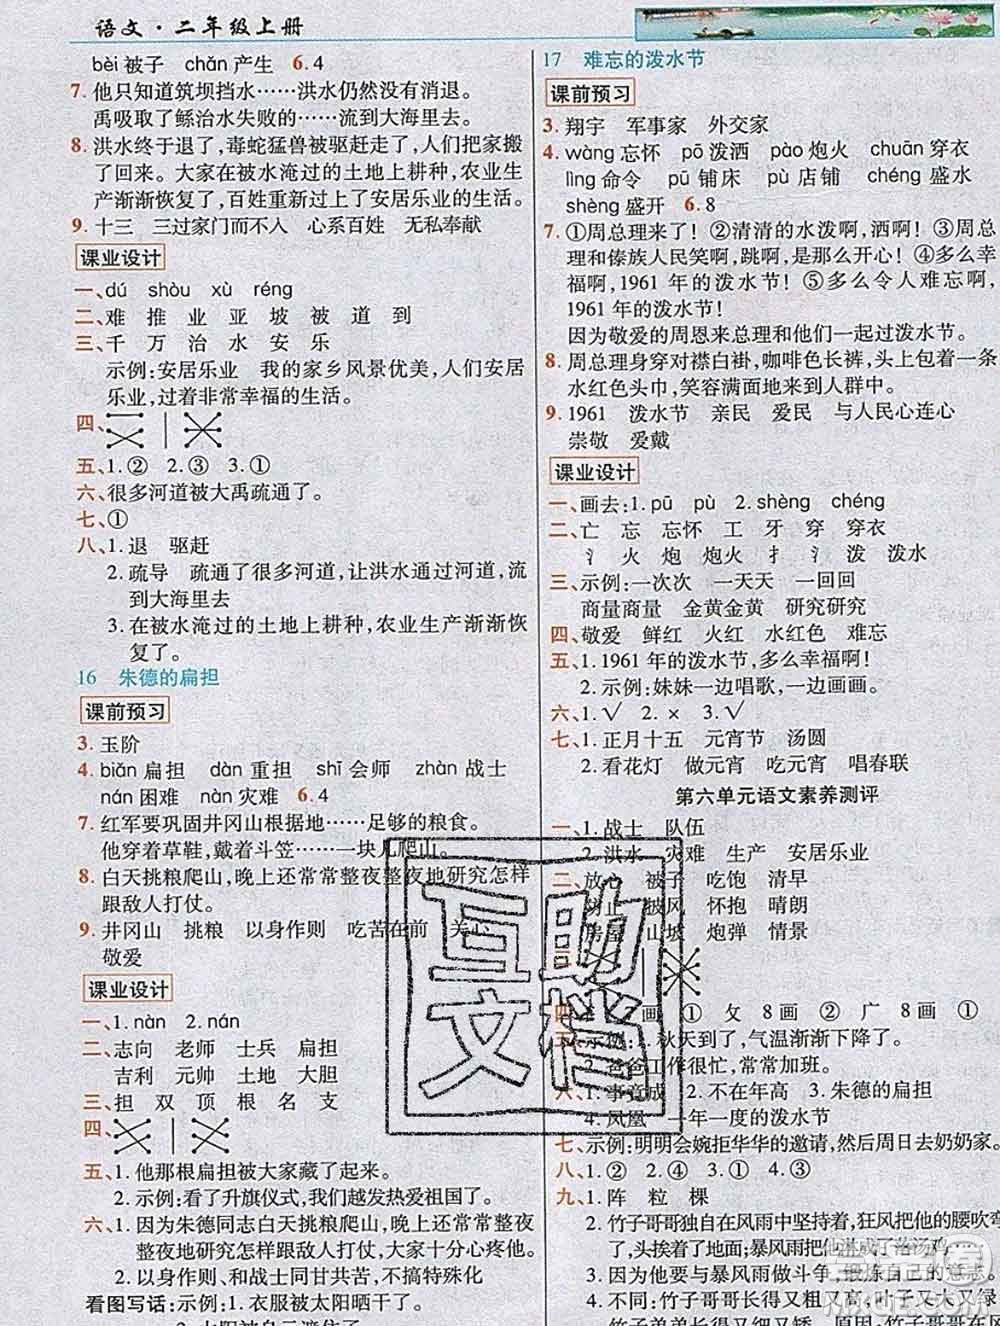 语文·二年级上册
bèi被子 chǎn产生 6.4
7. 他只知道筑坝挡水……洪水仍然没有消退。
禹吸取了鲧治水失败的……流到大海里去。
8. 洪水终于退了,毒蛇猛兽被驱赶走了,人们把家搬
了回来。大家在被水淹过的土地上耕种,农业生
产渐渐恢复了,百姓重新过上了安居乐业的生活。
9. 十三 三过家门而不入 心系百姓 无私奉献
课业设计
一、dú shòu xù réng
二、难 推 业 亚 坡 被 道 到
三、千 万 治 水 安 乐
示例:安居乐业 我的家乡风景优美,人们安居
乐业,过着非常幸福的生活。
四、
五、1.② 2.③ 3.①
六、很多河道被大禹疏通了。
七、①
八、1. 退 驱赶
2. 疏导 疏通了很多河道,让洪水通过河道,流
到大海里去
3. 在被水淹过的土地上耕种,农业生产渐渐恢
复了。
16 朱德的扁担
课前预习
3. 玉阶
4. biǎn扁担 dàn重担 shī会师 zhàn战士
nán困难 nàn灾难 6.4
7. 红军要巩固井冈山根据地……足够的粮食。
他穿着草鞋,戴着斗笠……一块儿爬山。
8. 白天挑粮爬山,晚上还常常整夜整夜地研究怎样
跟敌人打仗。
9. 井冈山 挑粮 以身作则 吃苦在前 关心
敬爱
课业设计
一、1. nàn 2. nán
二、志向 老师 士兵 扁担
吉利 元帅 土地 大胆
三、担 双 顶 根 名 支
四、
五、1. 他那根扁担被大家藏了起来。
2. 示例:看了升旗仪式,我们越发热爱祖国了。
六、1. 因为朱德同志白天挑粮爬山,晚上还常常整夜
整夜地研究怎样跟敌人打仗,大家十分心疼他。
2. 以身作则、和战士同甘共苦、不搞特殊化
看图写话:示例:1. 衣服被太阳晒干了。
17 难忘的泼水节
课前预习
3. 翔宇 军事家 外交家
4. wàng忘怀 pō泼洒 pào炮火 chuān穿衣
lìng命令 pū铺床 pù店铺 chéng盛水
shèng盛开 6.8
7. ①周总理来了! ②清清的水泼啊,洒啊! ③周总
理和傣族人民笑啊,跳啊,是那么开心! ④多么幸
福啊,1961年的泼水节! ⑤多么令人难忘啊,
1961年的泼水节!
因为敬爱的周恩来总理和他们一起过泼水节。
8. 周总理身穿对襟白褂,咖啡色长裤,头上包着一条
水红色头巾,笑容满面地来到人群中。
9. 1961 泼水节 亲民 爱民 与人民心连心
崇敬 爱戴
课业设计
一、画去:1. pū pù 2. shèng chéng
二、亡 忘 忘怀 工 牙 穿 穿衣
氵 火 炮 炮火 扌 氵 泼 泼水
三、示例:一次次 一天天 一回回
商量商量 金黄金黄 研究研究
四、敬爱 鲜红 火红 水红色 难忘
五、1. 1961年的泼水节,多么幸福啊!
2. 示例:妹妹一边唱歌,一边画画。
六、1.√ 2.× 3.√
七、1. 正月十五 元宵节 汤圆
2. 看花灯 做元宵 吃元宵 唱春联
第六单元语文素养测评
一、1. 战士 队伍
2. 洪水 灾难 生产 安居乐业
二、放心 被子 吃饱 清早
防止 披风 怀抱 晴朗
房屋 山坡 炮弹 情景
三、
画 ① 攵 8画 ② 广 8画 ①
五、示例:1. 秋天到了,气温渐渐下降了。
爸爸工作很忙,常常加班。
六、1. 事竟成 2. 不在年高 3. 朱德的扁担
4. 凤凰 一年一度的泼水节
七、示例:明明会婉拒华华的邀请,然后周日去奶奶家。
八、1.② 2.④ 3.① 4.③①
九、1. 阵 粒 棵
2. 竹子哥哥独自在风雨中坚持着,狂风把他的腰吹弯
了;示例:暴风雨把他淋成了落汤鸡
3. 他要与暴风雨做斗争,锻炼自己的意志。
4. 不同:竹子哥哥长得又粗又大
互助文档